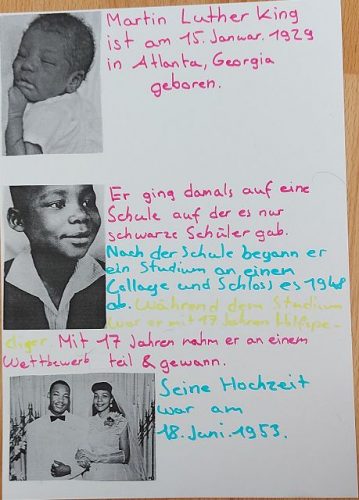 Martin Luther King
ist am 15. Januar. 1929
in Atlanta, Georgia
geboren.
Er ging damals auf eine
Schule auf der es nur
schwarze Schüler gab.
Nach der Schule begann er
ein Studium an einen
Collage und Schloss es 1948
ab. Während dem Studium
war er mit 17 Jahren Hilfspre-
diger. Mit 17 Jahren nahm er an einem
Wettbewerb teil & gewann.
Seine Hochzeit
war am
18. Juni. 1953.